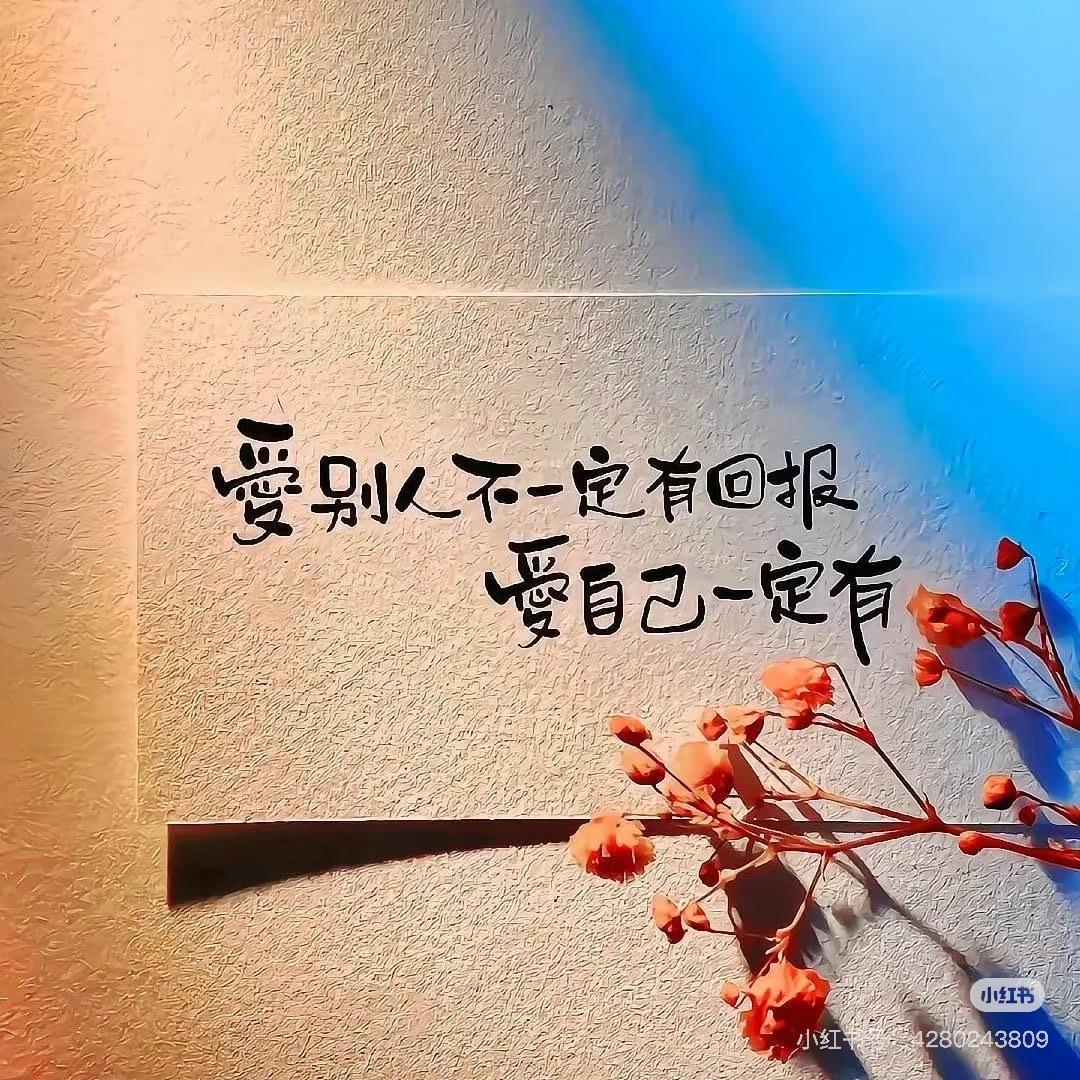 愛别人不一定有回报
愛自己一定有
小红书
小红书号：4280243809